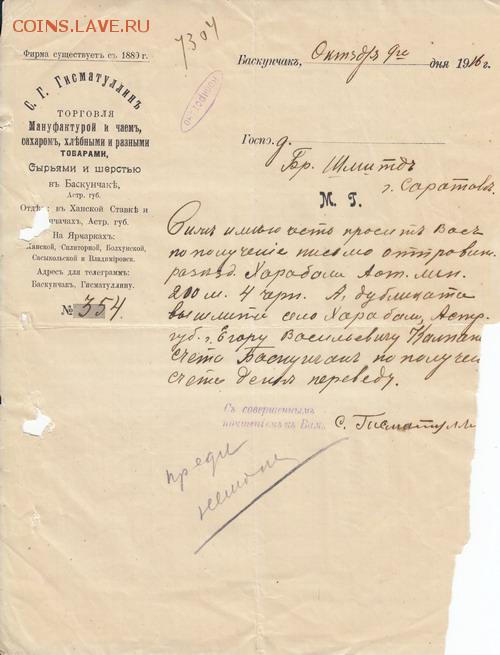 COINS.LAVE.RU
7304
Фирма существуетъ съ 1880 г.
С. Г. Гисматуллинъ
ТОРГОВЛЯ
Мануфактурой и чаемъ,
сахаромъ, хлѣбными и разными
ТОВАРАМИ,
Сырьями и шерстью
въ Баскунчакѣ,
Астр. губ.
Отдѣл. въ Ханской Ставкѣ и
Астр. губ.
На Ярмаркахъ:
Ханской,
Сасыкольской и Владиміровск.
Адресъ для телеграммъ:
Баскунчакъ, Гисматуллину.
№ 354
Баскунчакъ, Октября 9го дня 1916 г.
Госпд.
Бр. Шмитдъ
г. Саратовъ
М. Г.
Симъ имѣю честь просить Васъ
по получение письмо
Харабали Аст.
200 м. 4 черп. А. дубликата
село Харабали, Астр.
губ. г. Егору Васильевичу
счета Баскунчакъ по получен
счета денг переведу.
Съ совершеннымъ
почтеніемъ къ Вамъ С. Гисматулл